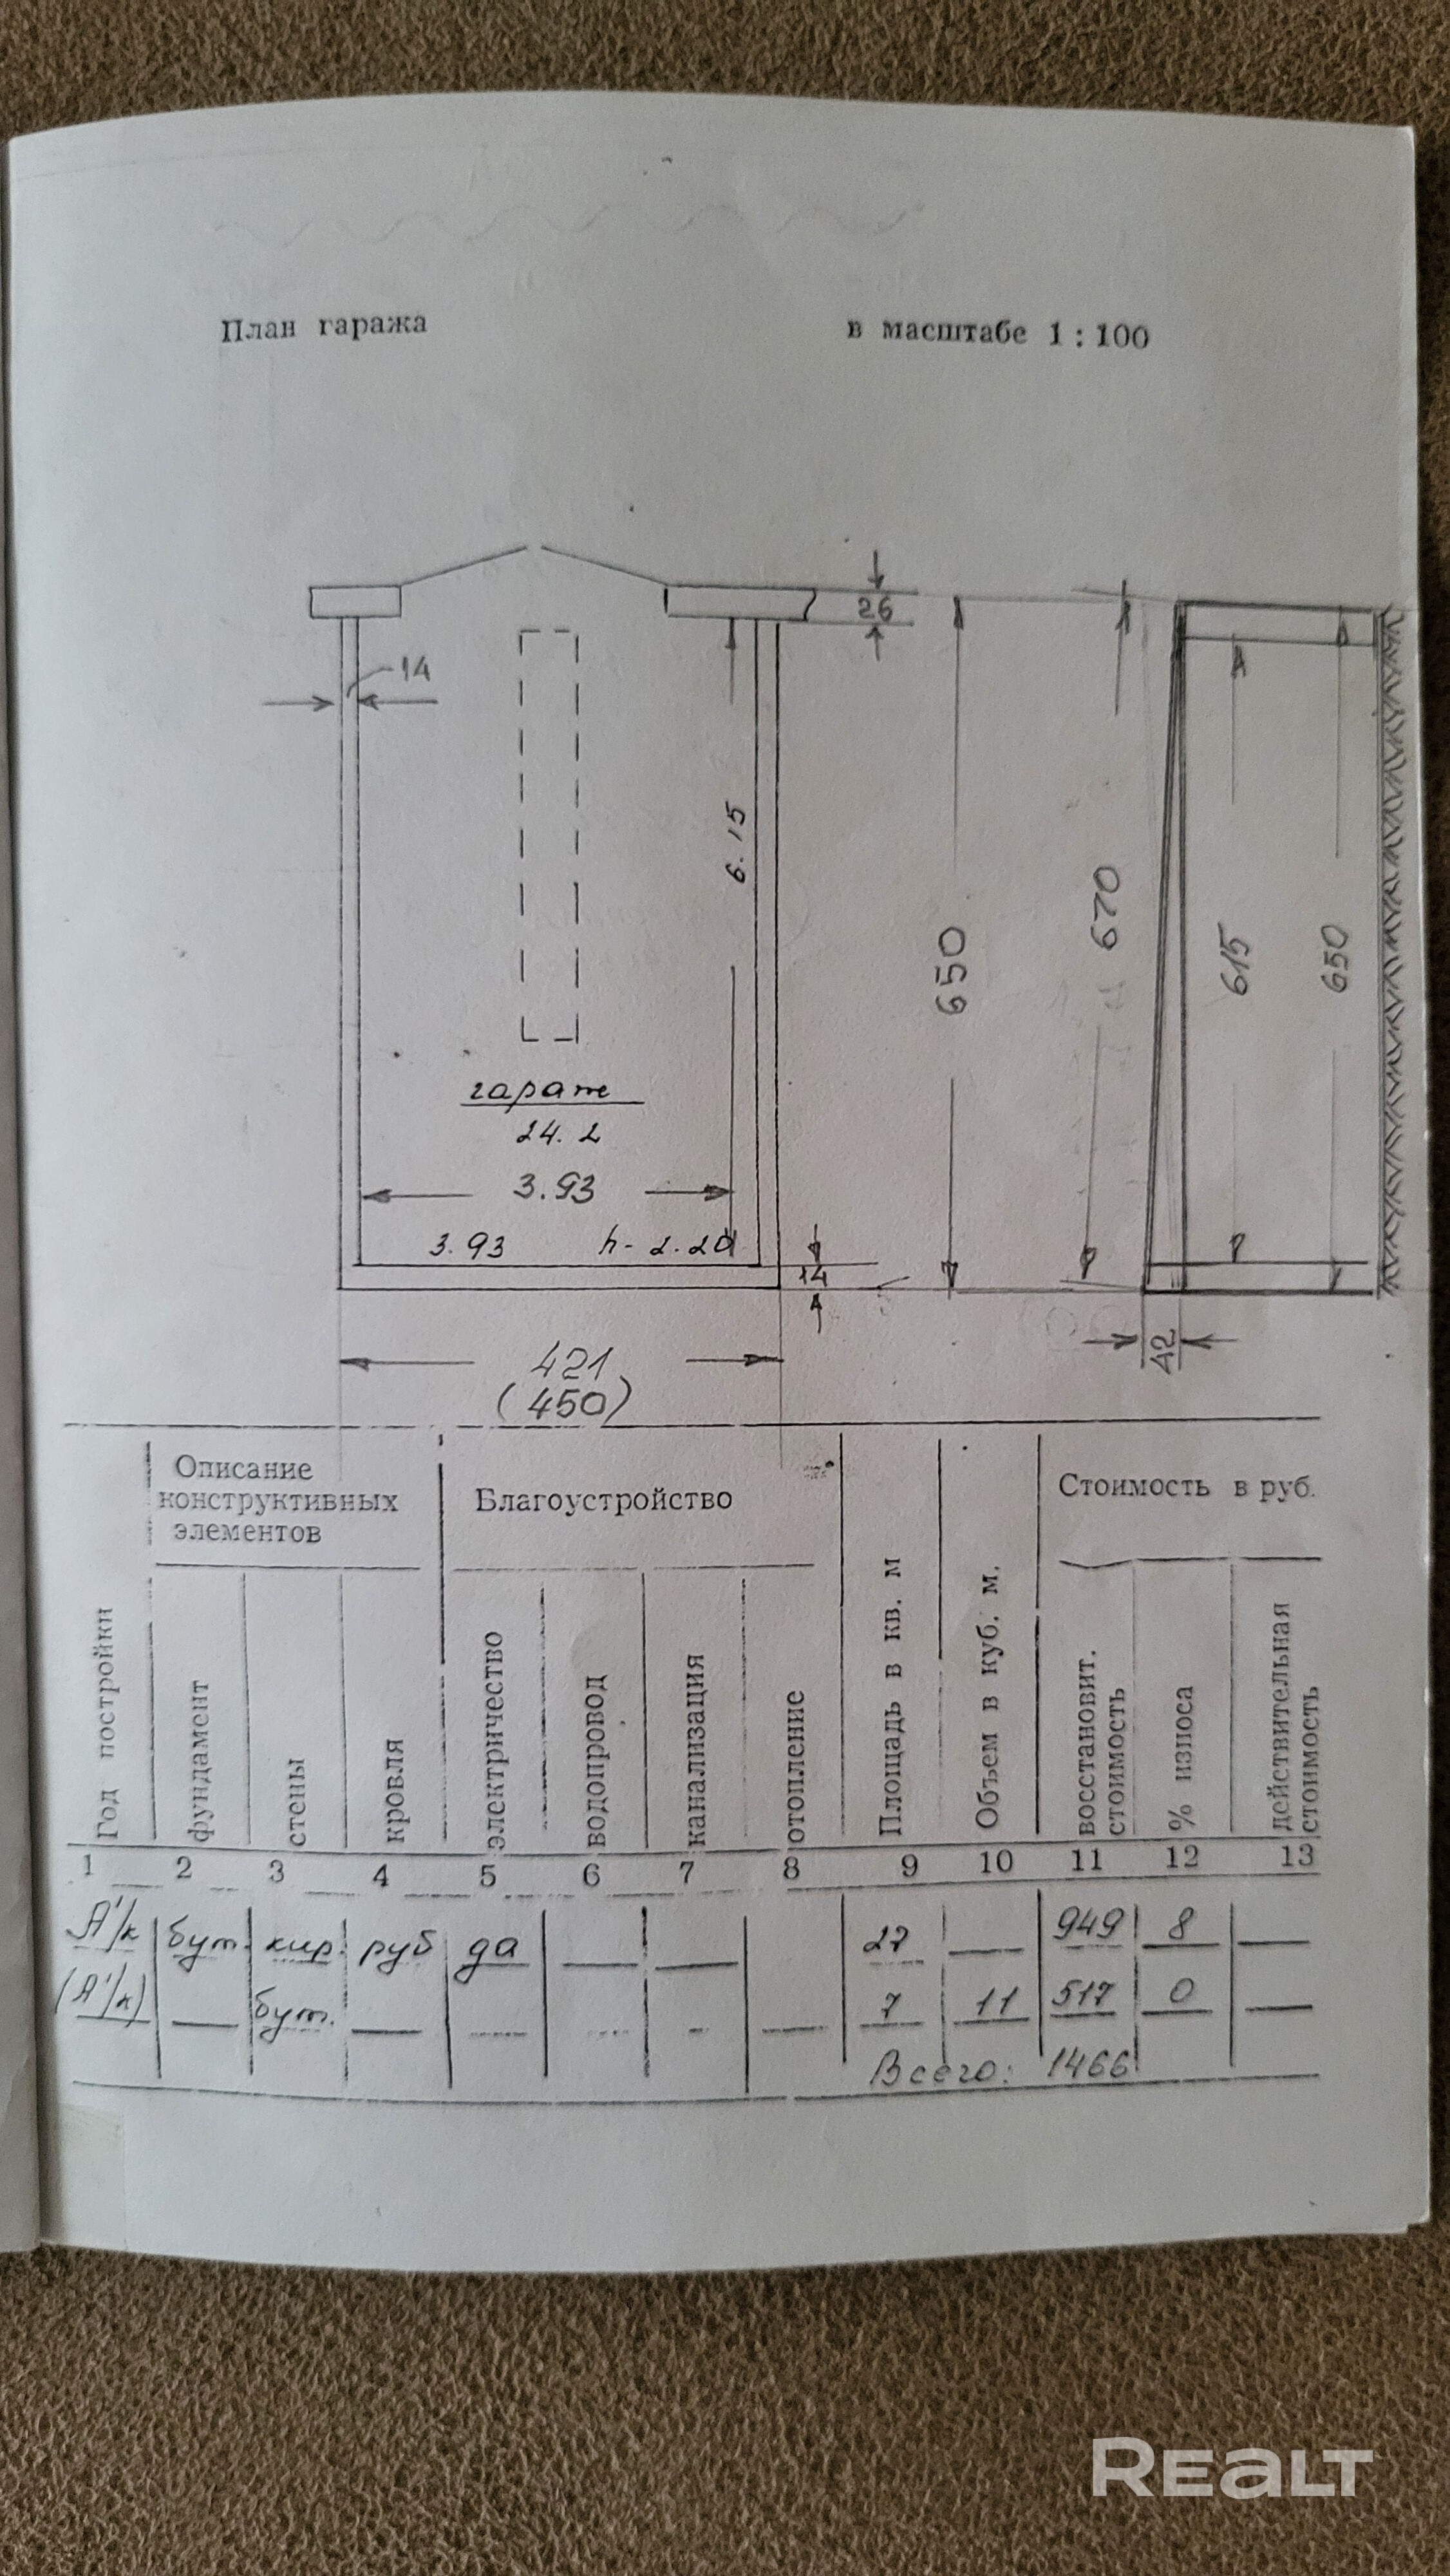 План гаража в масштабе 1 : 100
26
14
6.15
650
670
615
650
гараж
24.2
3.93
3.93 h- 2.20
14
421
(450)
42
Описание
конструктивных
элементов
Благоустройство
Стоимость в руб.
Год постройки
фундамент
стены
кровля
электричество
водопровод
канализация
отопление
Площадь в кв. м
Объем в куб. м.
восстановит.
стоимость
% износа
действительная
стоимость
1 2 3 4 5 6 7 8 9 10 11 12 13
А'/к бут. кир. руб да — — 27 — 949 8 —
(А'/к) — бут. — — — — — 7 11 517 0 —
Всего: 1466
REALT